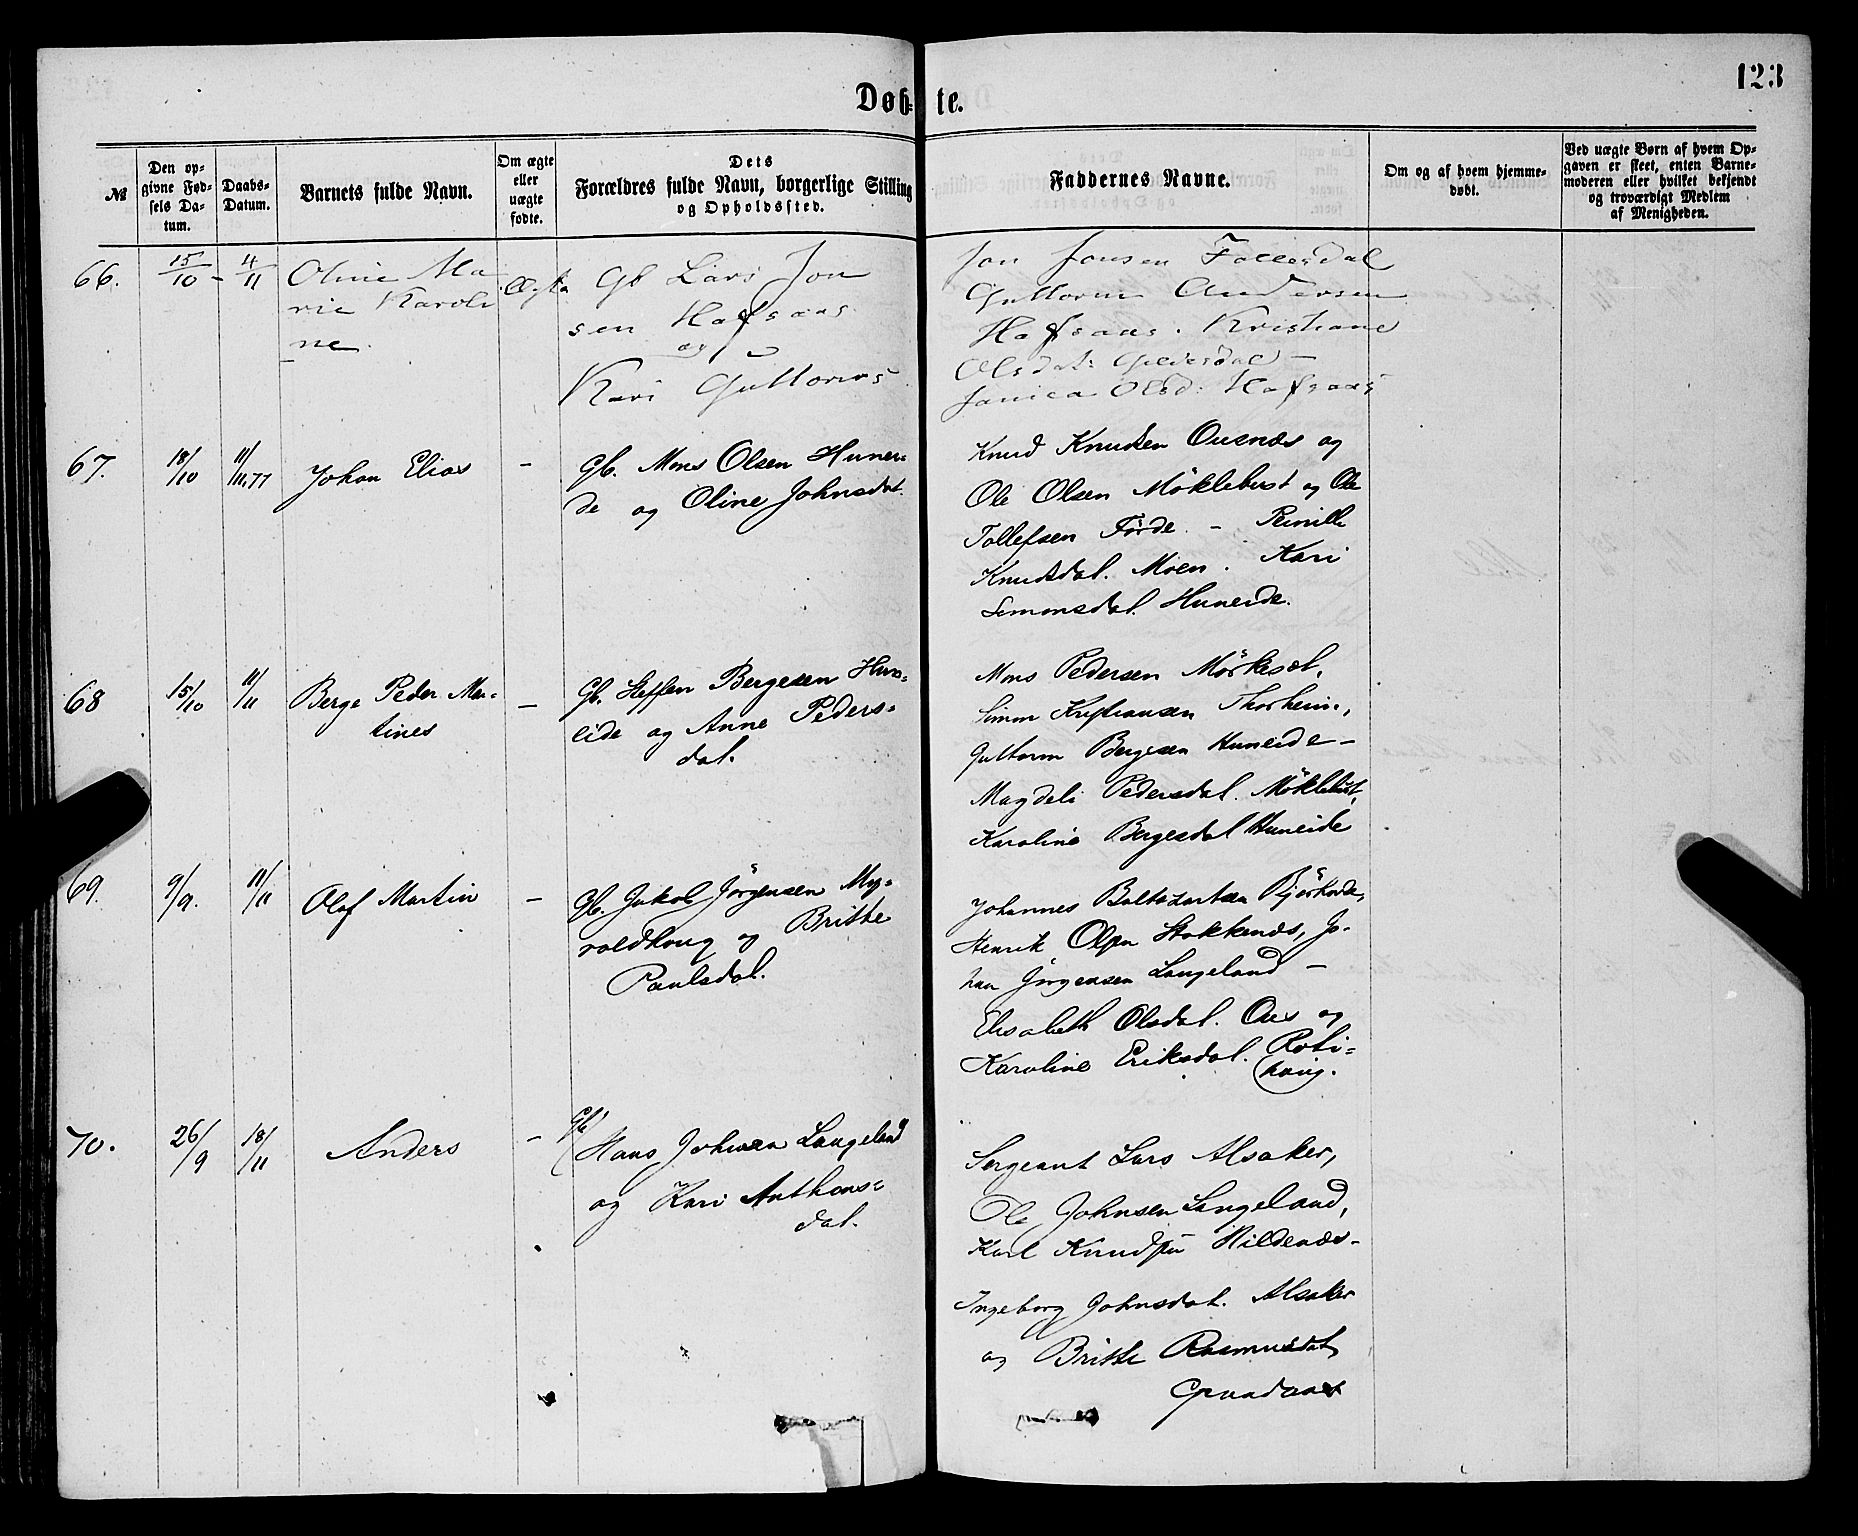 123
Døbte.
№
Den op-
givne Fød-
sels Da-
tum.
Daabs-
Datum.
Barnets fulde Navn.
Om ægte
eller
uægte
fødte.
Dets
Forældres fulde Navn, borgerlige Stilling
og Opholdssted.
Faddernes Navne.
Om og af hvem hjemme-
døbt.
Ved uægte Børn af hvem Op-
gaven er skeet, enten Barne-
moderen eller hvilket bekjendt
og troværdigt Medlem
af Menigheden.
66.
15/10 - 4/11
Oline Ma
rie Karoli
ne.
Ægte
Gb Lars Jon
sen Hafsaas
og
Kari Guttorms
Jon Jonsen
Guttorm Andersen
Hafsaas. Kristiane
Olsdat:
Olsd: Hafsaas
67.
18/10
11/11.77
Johan Elias
-
Gb. Mons Olsen Hunei=
de og Oline Johnsdat.
Knud Knudsen Ousnæs og
Ole Olsen Möklebust og Ole
Tollefsen Förde. - Pernille
Knudsdat. Moen. Kari
Simonsdat. Huneide.
68
15/10
11/11
Berge Peder Mar=
tines
-
Gb. Steffen Bergesen Hun=
eide og Anne Peders=
dat.
Mons Pedersen Mörkesæt,
Simon Kristiansen Thorheim,
Guttorm Bergesen Huneide -
Magdeli Pedersdat. Möklebust,
Karoline Bergesdat Huneide
69.
9/9.
11/11
Olaf Martin
-
Gb. Jakob Jörgensen My=
roldhoug og Britte
Paulsdat.
Johannes Baltazarsen
Henrik Olsen Stokkenæs, Jo=
han Jörgensen Langeland -
Elisabeth Olsdat. Aas og
Karoline Eriksdat. Roti=
houg.
70.
26/9
18/11
Anders
-
Gb.
Hans Johnsen Langeland
og Kari Anthons=
dat.
Sergeant Lars Alsaker,
Ole Johnsen Langeland,
Karl Knudsen Hildenæs -
Ingeborg Johnsdat. Alsaker
og Britte Rasmusdat,